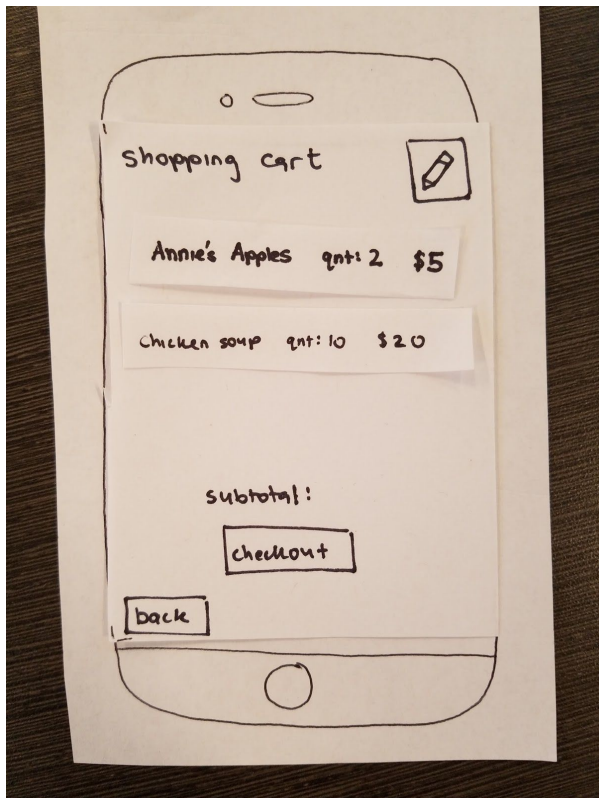 shopping cart
Annie's Apples qnt: 2 $5
chicken soup qnt: 10 $20
subtotal:
checkout
back